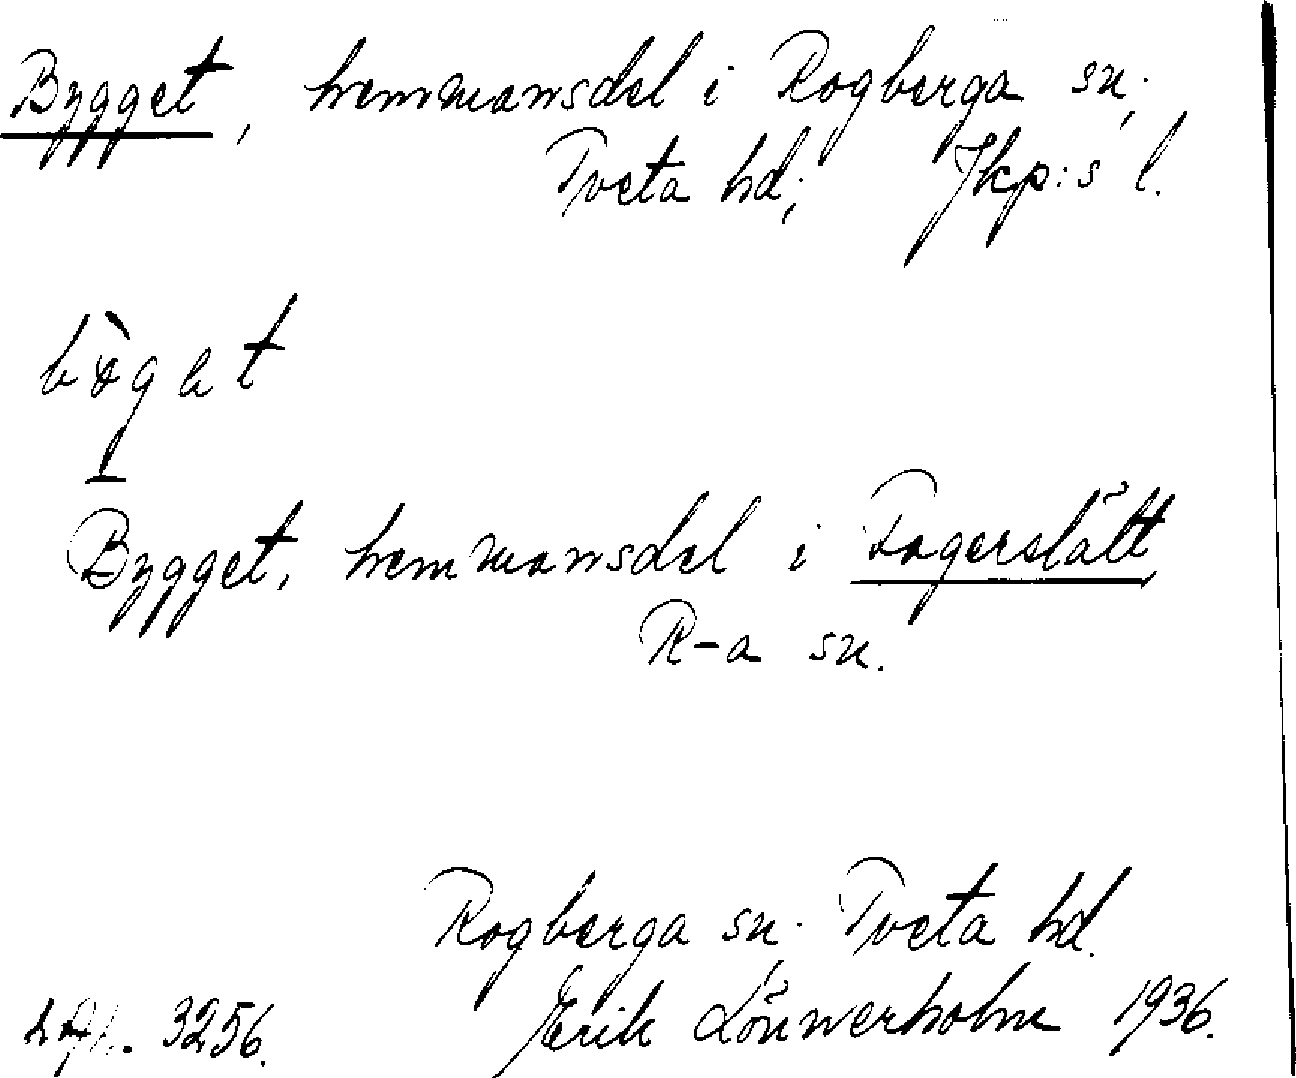 Bygget, hemmansdel i Rogberga sn;
Tveta hd; Jkp:s l.
bög et
Bygget, hemmansdel i Fagerslätt,
R-a sn.
Rogberga sn. Tveta hd.
3256. Erik Lönnerholm 1936.